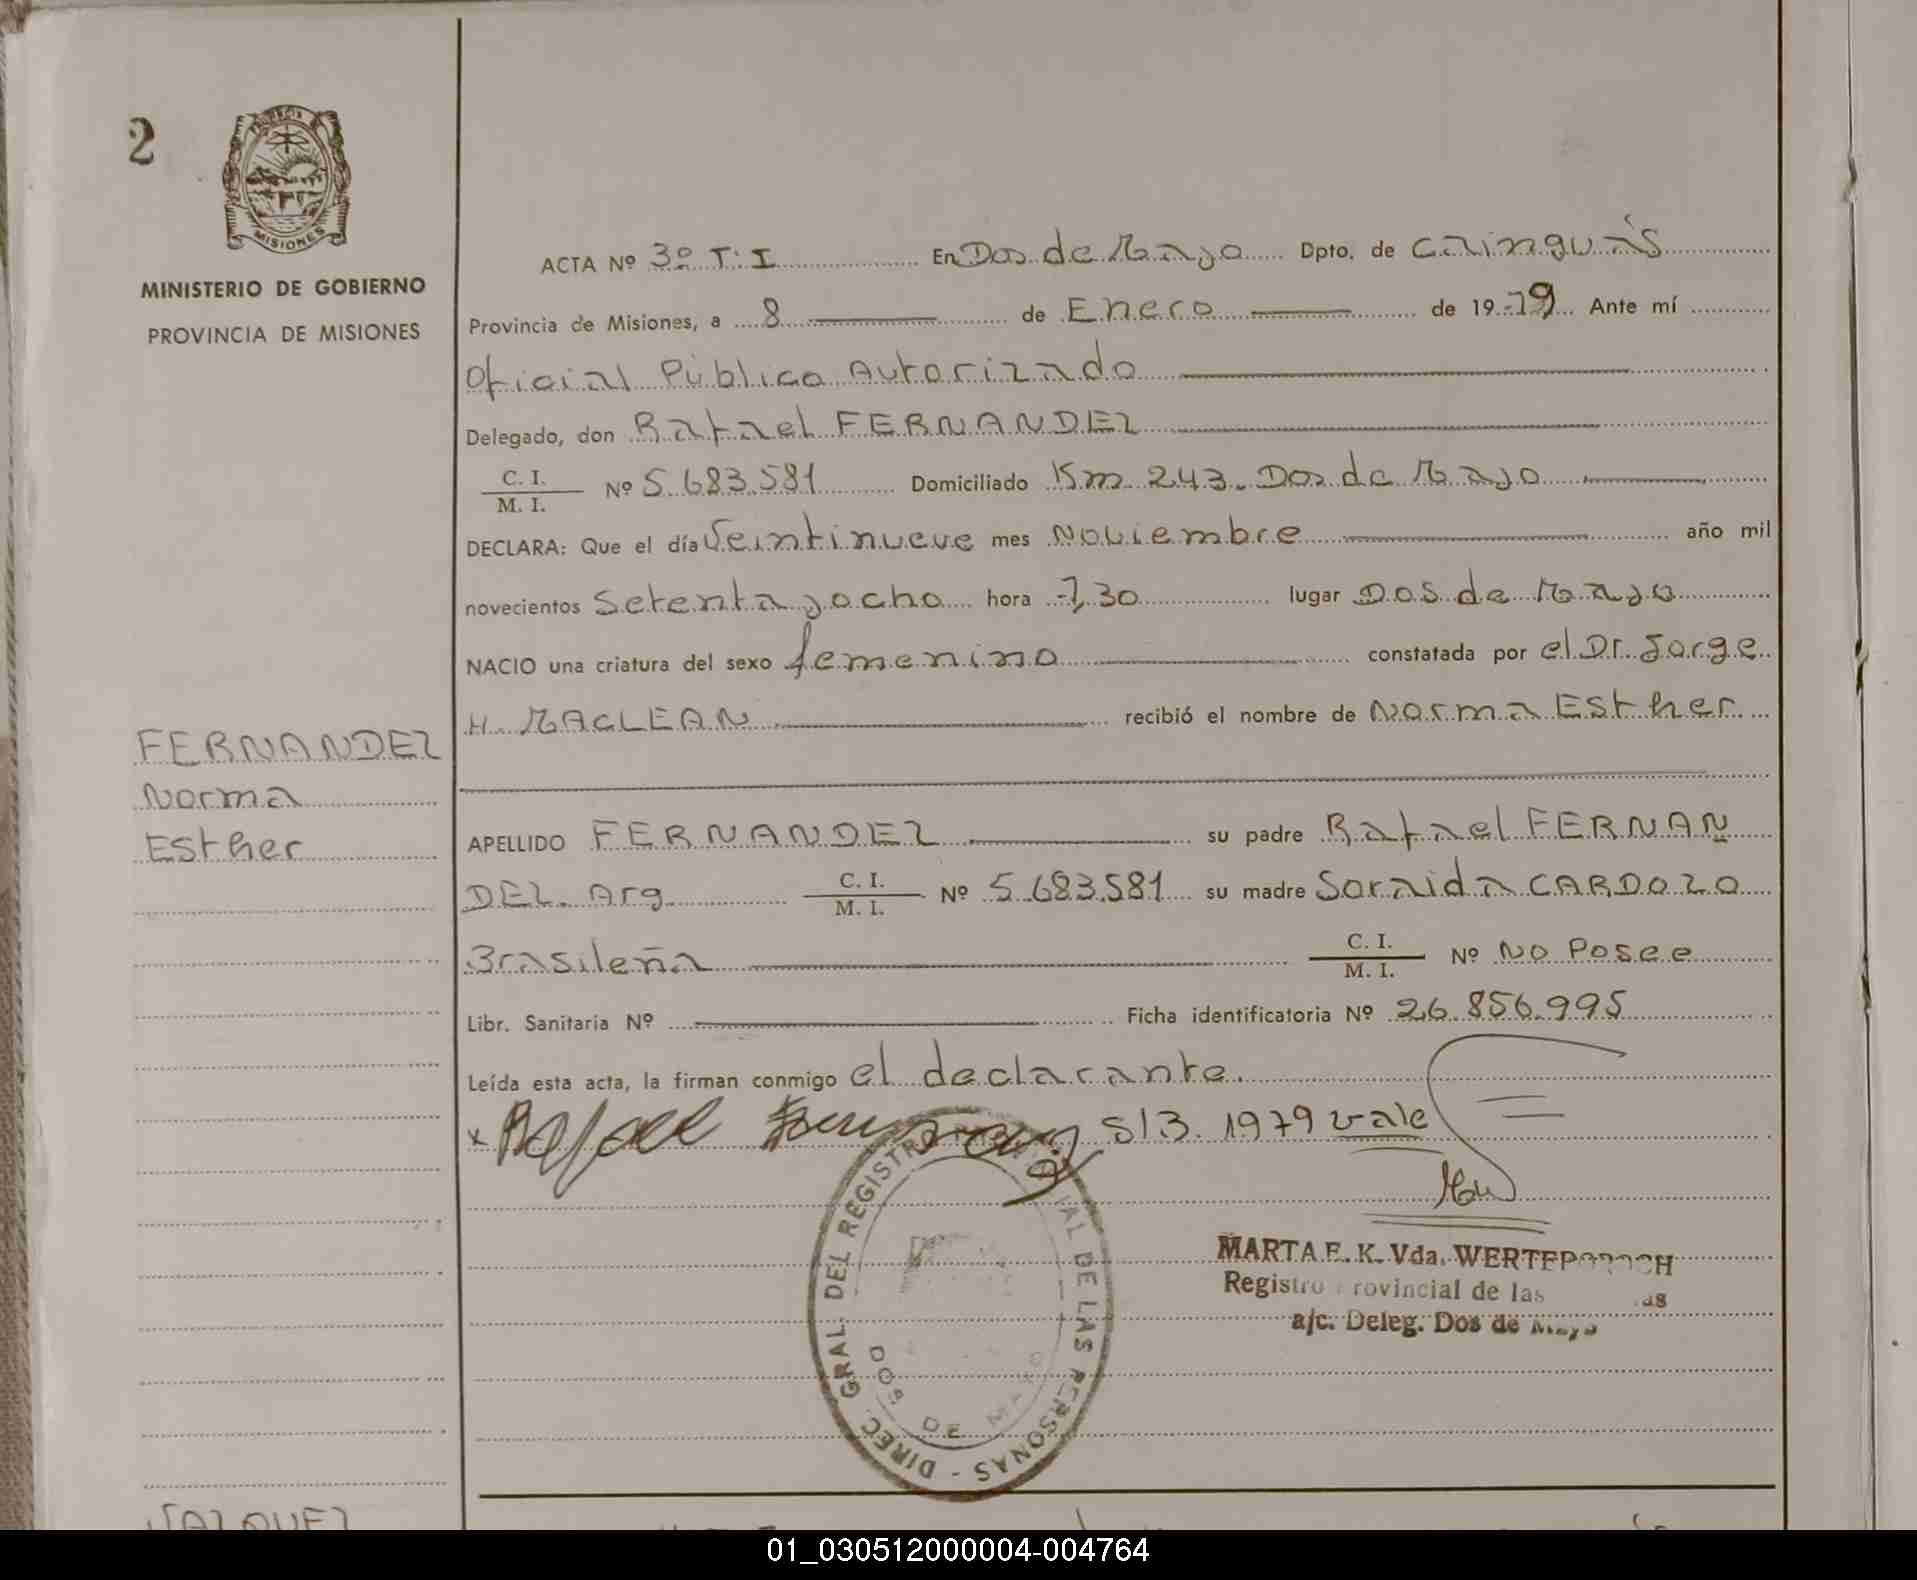 2
PROVINCIA
MISIONES
MINISTERIO DE GOBIERNO
PROVINCIA DE MISIONES
FERNANDEZ
Norma
Esther
ACTA Nº 3º T: I En Dos de Mayo Dpto. de Cainguás
Provincia de Misiones, a 8 de Enero de 1979 Ante mí
Oficial Público Autorizado
Delegado, don Rafael FERNANDEZ
C. I.
M. I. Nº 5.683.581 Domiciliado Km 243. Dos de Mayo
DECLARA: Que el día Veintinueve mes Noviembre año mil
novecientos Setenta y ocho hora 7,30 lugar Dos de Mayo
NACIO una criatura del sexo femenino constatada por el Dr. Jorge
H. MACLEAN recibió el nombre de Norma Esther
APELLIDO FERNANDEZ su padre Rafael FERNAN
DEZ. Arg. C. I. M. I. Nº 5.683.581 su madre Soraida CARDOZO
Brasileña C. I. M. I. Nº No Posee
Libr. Sanitaria Nº Ficha identificatoria Nº 26.856.995
Leída esta acta, la firman conmigo el declarante.
x Rafael S/3. 1979 vale
DIREC. GRAL. DEL REGISTRO DE LAS PERSONAS -
DOS DE MAYO
MARTA E. K. Vda.
Registro Provincial de las
a/c. Deleg. Dos de Mayo
VAZQUEZ
01_030512000004-004764